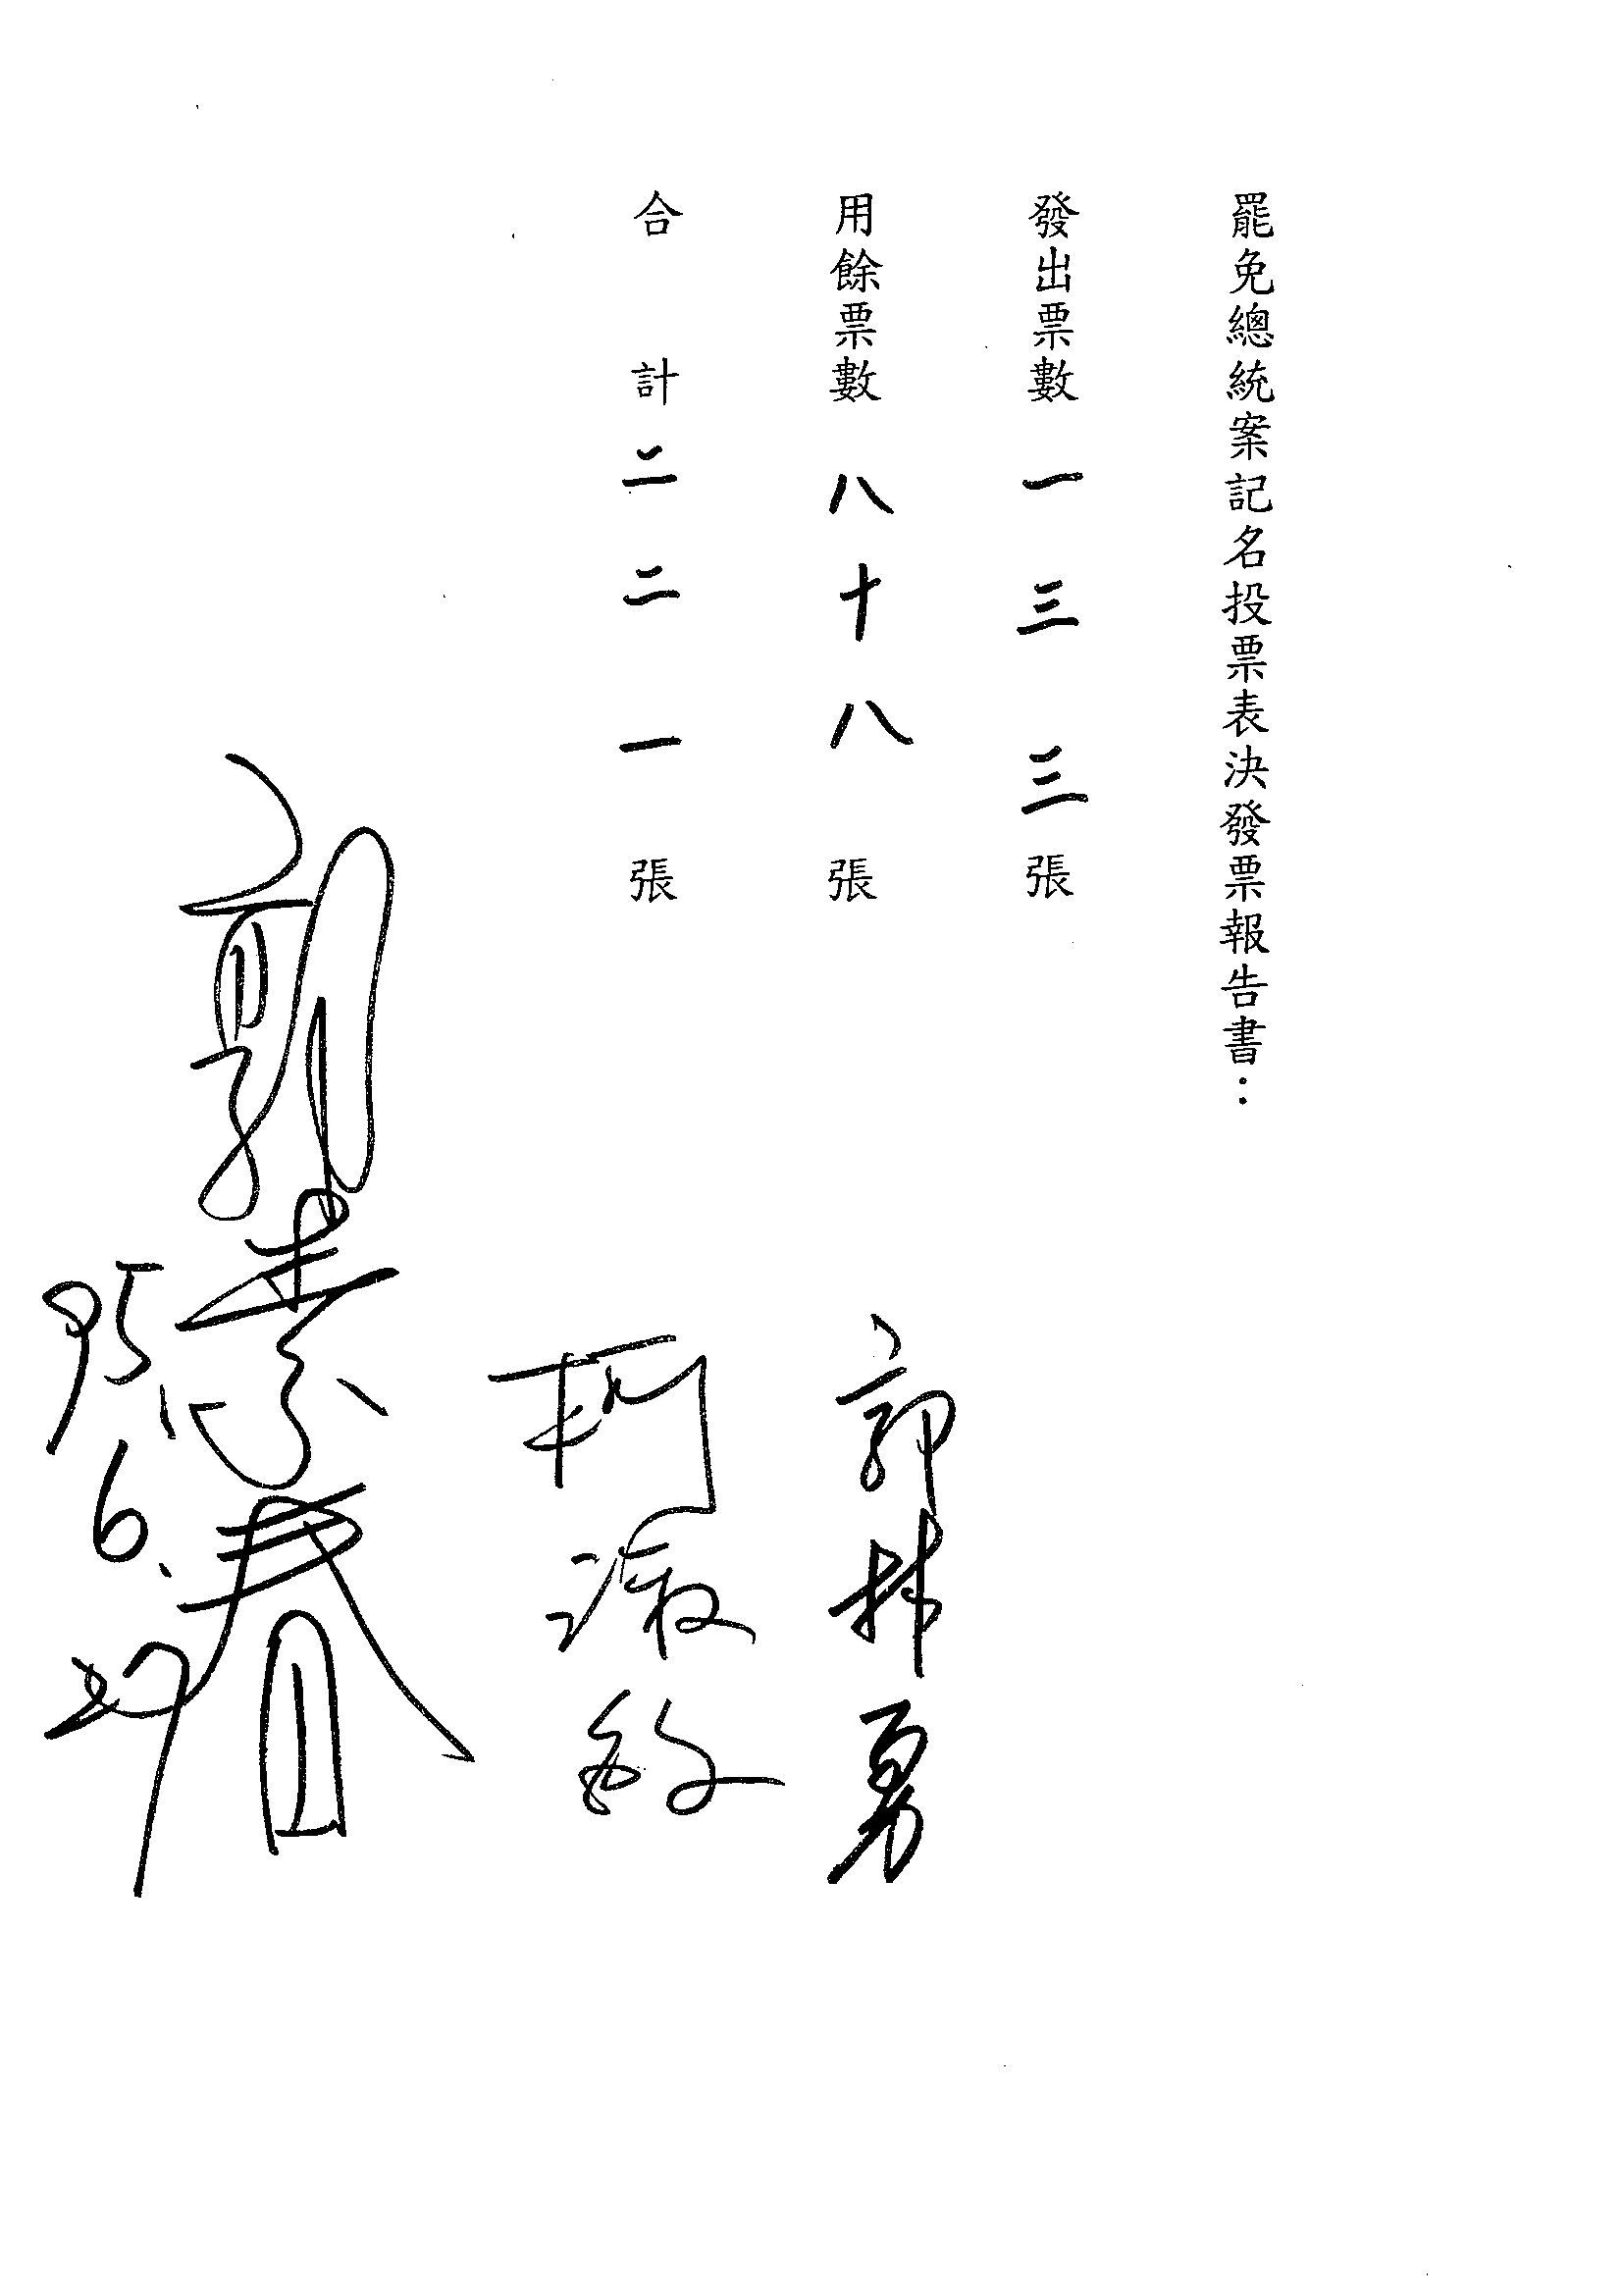 罷免總統案記名投票表決發票報告書：
發出票數一三三張
用餘票數八十八張
合計二二一張
郭林勇
柯淑敏
郭素春
95.6.27